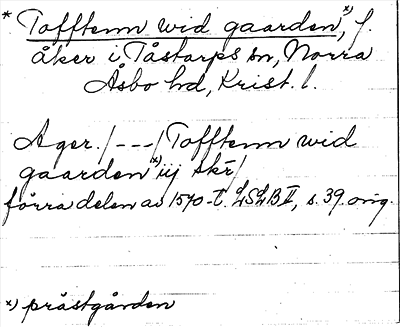 * Tofftenn wid gaarden,ˣ⁾ f.
åker i Tåstarps sn, Norra
Åsbo hd, Krist. l.
Ager. /---/ Tofftenn wid
gaarden ˣ⁾ iij skr̄ /
förra delen av 1570-t. LSLB II, s. 39. orig.
x) prästgården